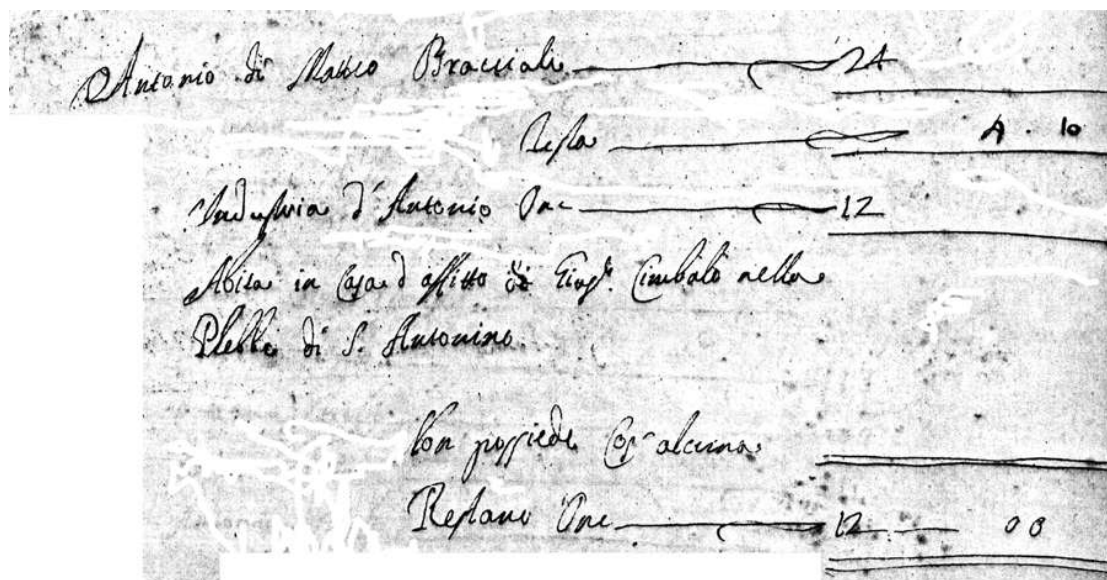 Antonio di Matteo Bracciale 24
Testa 4 . 10
Industria d'Antonio Onc 12
Abita in Casa d affitto di Cimbalo nella
Plebbe di S. Antonino.
Non possiede Cos' alcuna
Restano Onc 12 00